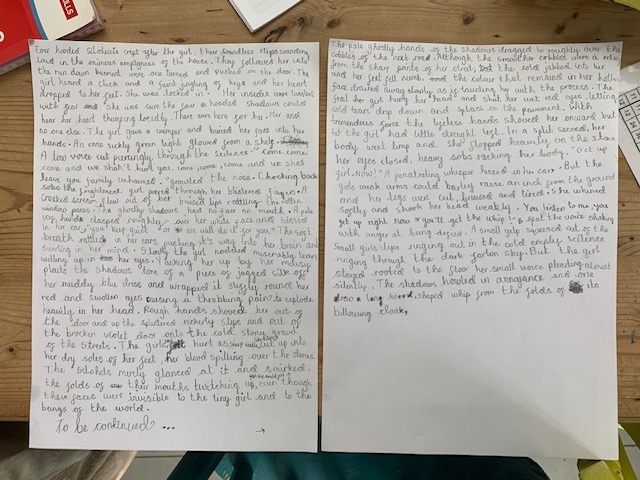 SKILLS
Four hooded siloluets crept after the girl, their soundless steps sounding
loud in the ominous emptyness of the house. They followed her into
the run down basment were she turned and pushed on the door. The
girl heard a click and a faint jingling of keys and her heart
dropped to her feet. She was locked in. Her insides were twisted
with fear and she was sure the four hooded shadows could
hear her heart thumping loudly. There were here for her. Her and
no one else. The girl gave a wimper and buried her face into her
hands. An eerie sickly green light glowed from a shelf.
A low voice cut piercingly through the scilence: "Come, come,
come and we shan't hurt you, come, come, come and we shall
leave you family unharmed." growled the nose. Chocking back
sobs the frightened girl peered through her blistered fingers. A
croaked scream flew out of her bruised lips rattling the rotten
window panes. The ghostly shadows had no face no mouth. A pale
icy hand clasped roughly over her white face and hissed
in her ear, "you keep quiet or we will do it for you." The soft
breath rattled in her ears pushing it's way into her brain and
swirling in her mind. Slowly the girl nodded miserably tears
welling up in her eyes. Yanking her up by her mousy
plaits the shadows tore of a piece of jagged silk off
her muddy blue dress and wrapped it stiffly round her
red and swollen eyes causing a throbbing pain to explode
heavily in her head. Rough hands shoved her out of
the door and up the splintered rickerty steps and out of
the brocken violet door onto the cold stony gravel
of the streets. The girls feet hurt as cut up into
her dry soles of her feet, her blood spilling over the stones.
The silohets merely glanced at it and smirked,
the folds of their mouths twitching up, even though
their faces were invisible to the tiny girl and to the
beings of the world.
To be continued...
→
The pale ghostly hands of the shadows dragged her roughly over the
cobbles of the next road. Although the smoother cobbles were a relief
from the sharp points of her street, but the cold seeped into her
and her feet fell numb and the colour that remain in her hollow
face drained away slowly as if taunting her with the process. The
girl hung her head and shut her wet red eyes letting
cold tears drip down and splash on the pavement. With
tremendous force the lifeless hands shoved her onward but
the girl had little strenght left. In a split second, her
body went limp and she flopped heavily on the floor
her eyes closed, heavy sobs racking her body. "Get up
girl, NOW!" A penetrating whisper hissed in her ear. But the
girls weak arms could barley raise an inch from the ground
and her legs were cut, bruised and tired. She whined
softly and shook her head weakly. "You listen to me, you
get up right now or you'll get the whip" spat the voice shaking
with anger at being defied. A small yelp squeezed out of the
small girls lips ringing out in the cold empty scilence
ringing through the dark forlon sky. But the girl
stayed rooted to the floor her small voice pleading almost
silently. The shadows howled in annoyance and one
drew a long shaped whip from the folds of
billowing cloak.